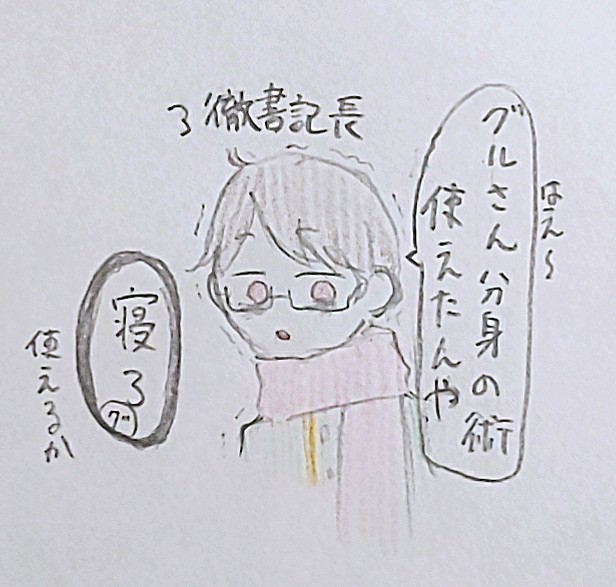 3徹書記長
はえ～
グルさん分身の術
使えたんや
寝ろ
グ
使えるか